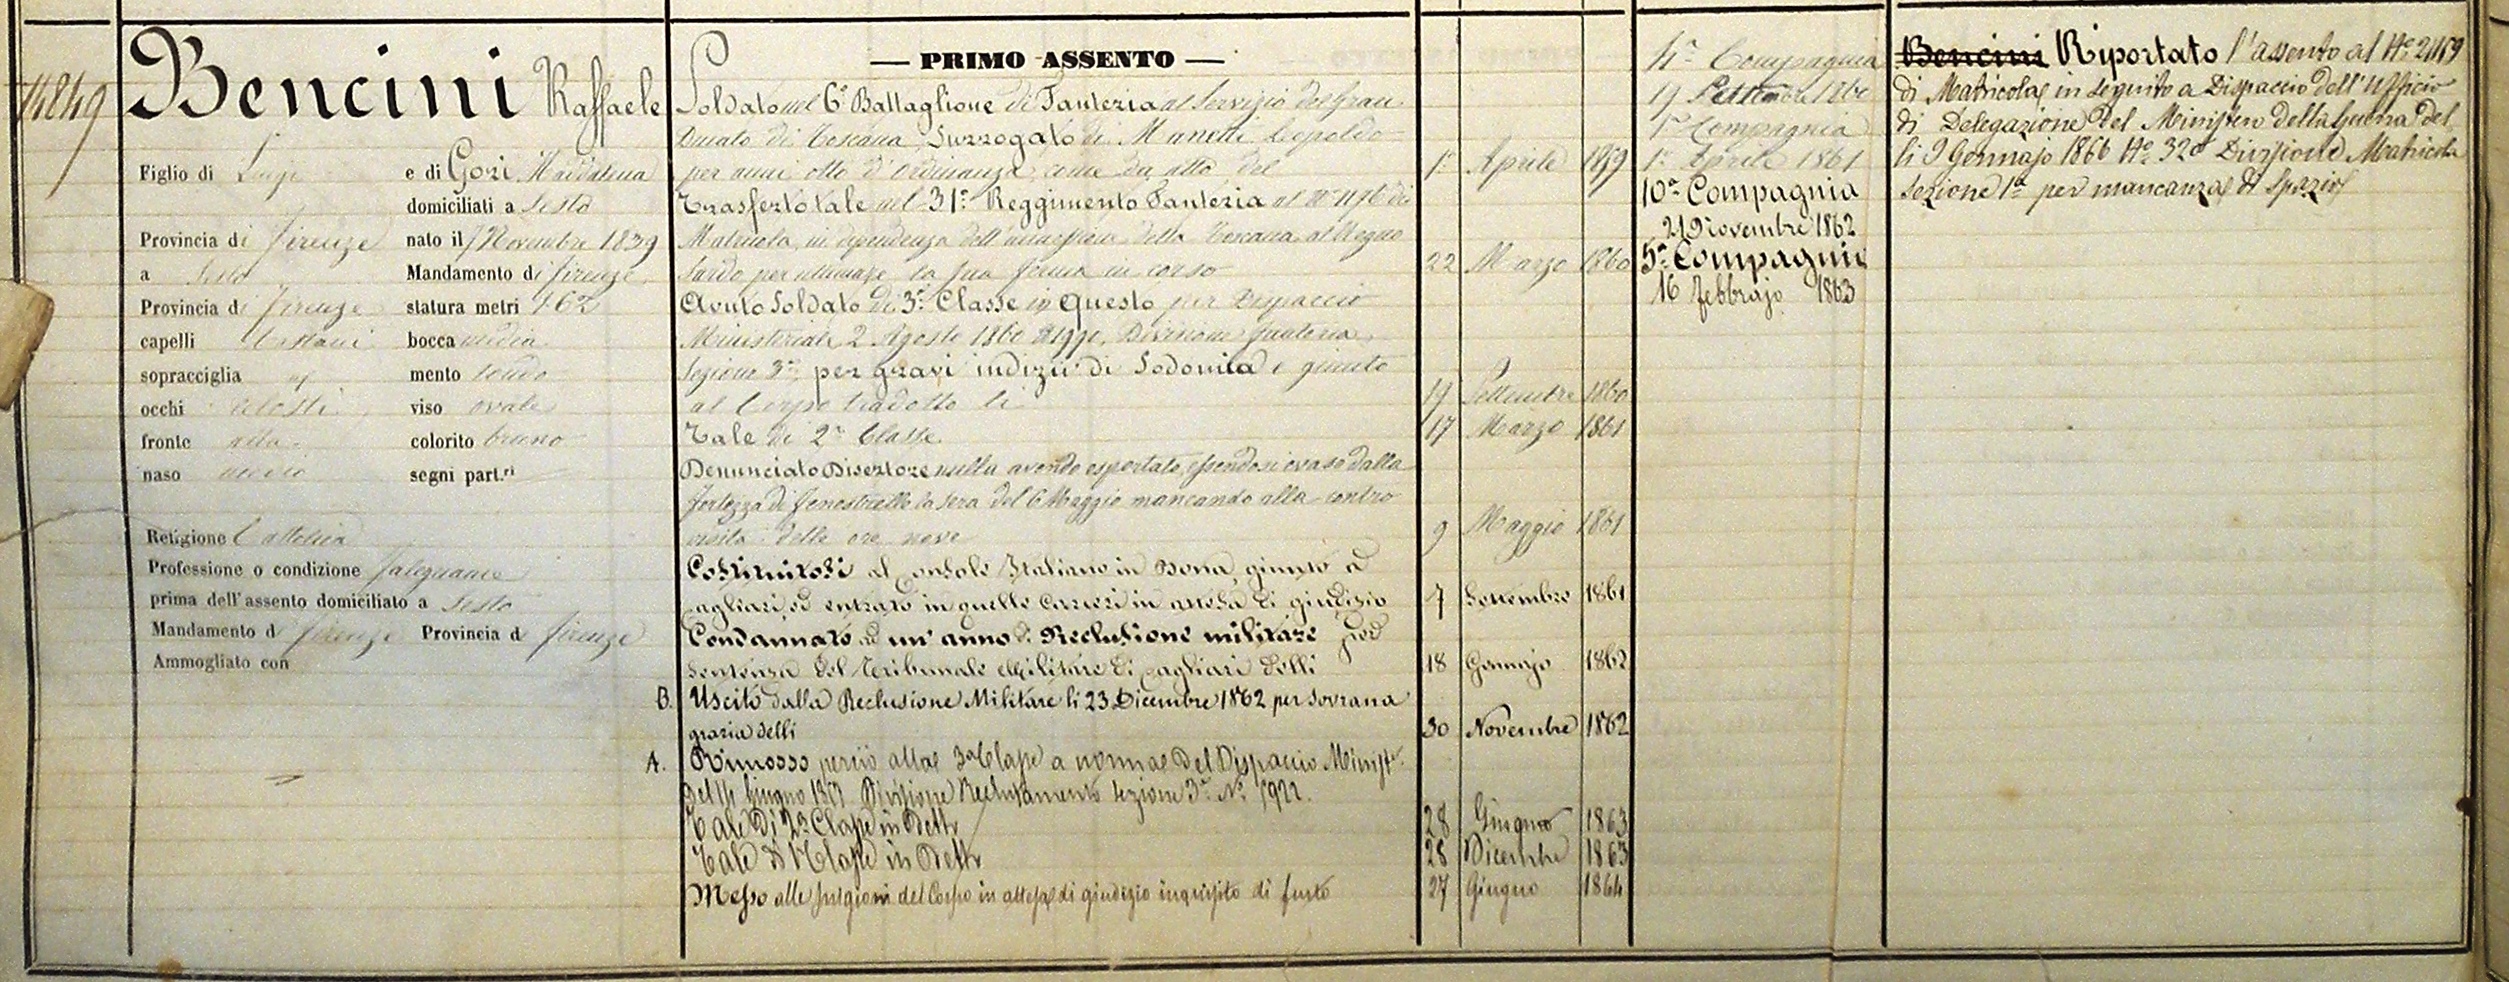 14849
Bencini Raffaele
Figlio di Luigi e di Gori Maddalena
domiciliati a Sesto
Provincia di Firenze nato il 7 Novembre 1839
a Sesto Mandamento di Firenze
Provincia di Firenze statura metri 1 62
capelli castani bocca media
sopracciglia id mento tondo
occhi celesti viso ovale
fronte alta colorito bruno
naso medio segni part.ri
Religione Cattolica
Professione o condizione falegname
prima dell'assento domiciliato a Sesto
Mandamento di Firenze Provincia di Firenze
Ammogliato con
— PRIMO ASSENTO —
Soldato nel 6° Battaglione di Fanteria al Servizio del Gran
Ducato di Toscana, Surrogato di Manetti Leopoldo
per anni otto d'ordinanza, come da atto del 1° Aprile 1859
Trasferto tale nel 31° Reggimento Fanteria al N° di
Matricola, in dipendenza dell'annessione della Toscana al Regno
Sardo per ultimare la sua ferma in corso 22 Marzo 1860
Avuto Soldato di 3a Classe in questo per Dispaccio
Ministeriale 2 Agosto 1860 Divisione fanteria,
Sezione 3a, per gravi indizii di Sodomia e giunto
al Corpo tradotto li 19 Settembre 1860
Tale di 2a Classe 17 Marzo 1861
Denunciato Disertore nulla avendo esportato, essendosi evaso dalla
Fortezza di Fenestrelle la sera del 6 Maggio mancando alla contro
visita delle ore nove 9 Maggio 1861
Costituitosi al Console Italiano in Bona, giunto a
Cagliari ed entrato in quelle carceri in attesa di giudizio 7 Settembre 1861
Condannato ad un'anno di Reclusione militare per
sentenza del Tribunale Militare di Cagliari delli 18 Gennajo 1862
B. Uscito dalla Reclusione Militare li 23 Dicembre 1862 per sovrana
grazia delli 30 Novembre 1862
A. Rimosso perciò alla 3a Classe a norma del Dispaccio Minist.
del Giugno Divisione Reclutamento Sezione 3a N° 1922.
Tale di 2a Classe in detto 28 Giugno 1863
Tale di 1a Classe in detto 28 Dicembre 1863
Messo alle prigioni del Corpo in attesa di giudizio inquisito di furto 27 Giugno 1864
4a Compagnia
19 Settembre 1860
1a Compagnia
1° Aprile 1861
10a Compagnia
21 Novembre 1862
5a Compagnia
16 Febbrajo 1863
Bencini Riportato l'assento al N° 21159
di Matricola in seguito a Dispaccio dell'Ufficio
di Delegazione del Ministero della Guerra del
li 9 Gennajo 1866 N° 320 Divisione Matricola
sezione 1a per mancanza di spazio